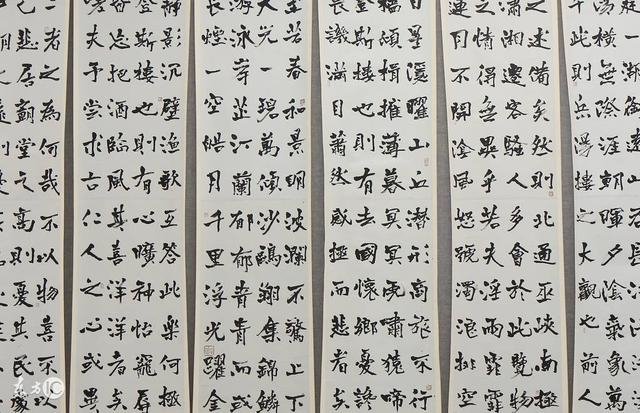 湯橫無際涯朝暉夕陰氣象萬
千此則岳陽樓之大觀也前人
之述備矣然則北通巫峽南極
瀟湘遷客騷人多會於此覽物
之情得無異乎若夫淫雨霏
連月不開陰風怒號濁浪排空
星隱曜山丘潛形商旅不行
檣傾楫摧薄暮冥冥虎嘯猿啼
登斯樓也則有去國懷鄉憂讒
畏譏滿目蕭然感極而悲者矣
至若春和景明波瀾不驚上下
天光一碧萬頃沙鷗翔集錦鱗
游泳岸芷汀蘭郁郁青青而或
長煙一空皓月千里浮光躍金
靜影沉璧漁歌互答此樂何極
登斯樓也則有心曠神怡寵辱
皆忘把酒臨風其喜洋洋者矣
夫予嘗求古仁人之心或異
二者之為何哉不以物喜不以
己悲居廟堂之高則憂其民
东方IC